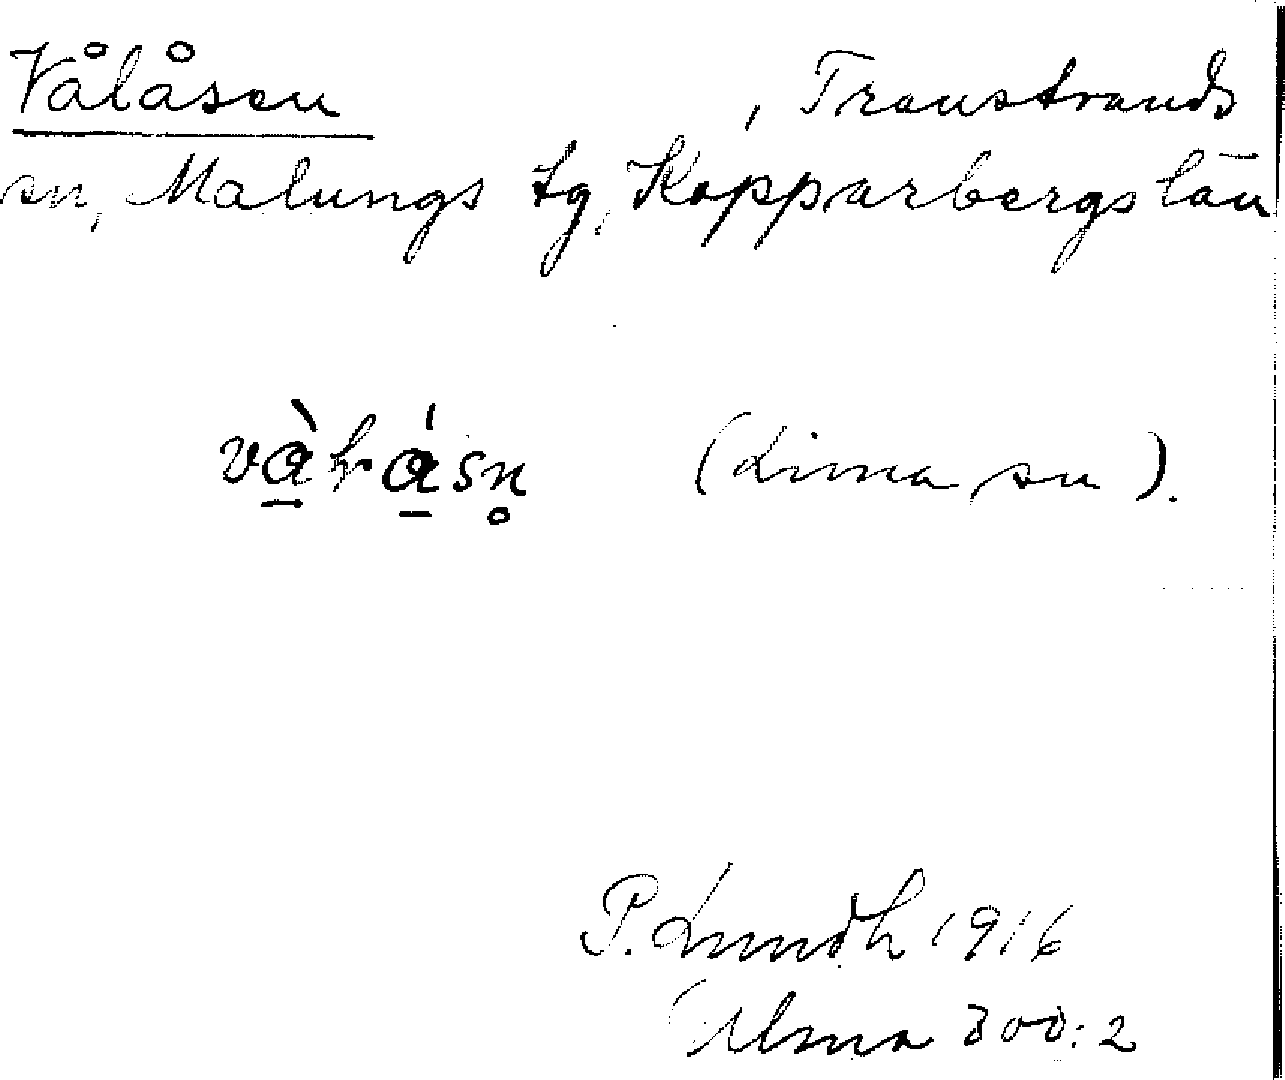 Vålåsen , Transtrands
sn, Malungs tg, Kopparbergs län
(Lima sn).
P. Lundh 1916
Ulma 300:2